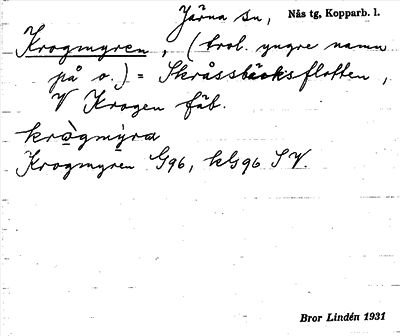 Järna sn, Nås tg, Kopparb. l.
Krogmyren, (trol. yngre namn
på o.) = Skråssbäcksflotten,
V Krogen fäb.
kro̱gmy̱ra
Krogmyren G96, kG96 SV.
Bror Lindén 1931